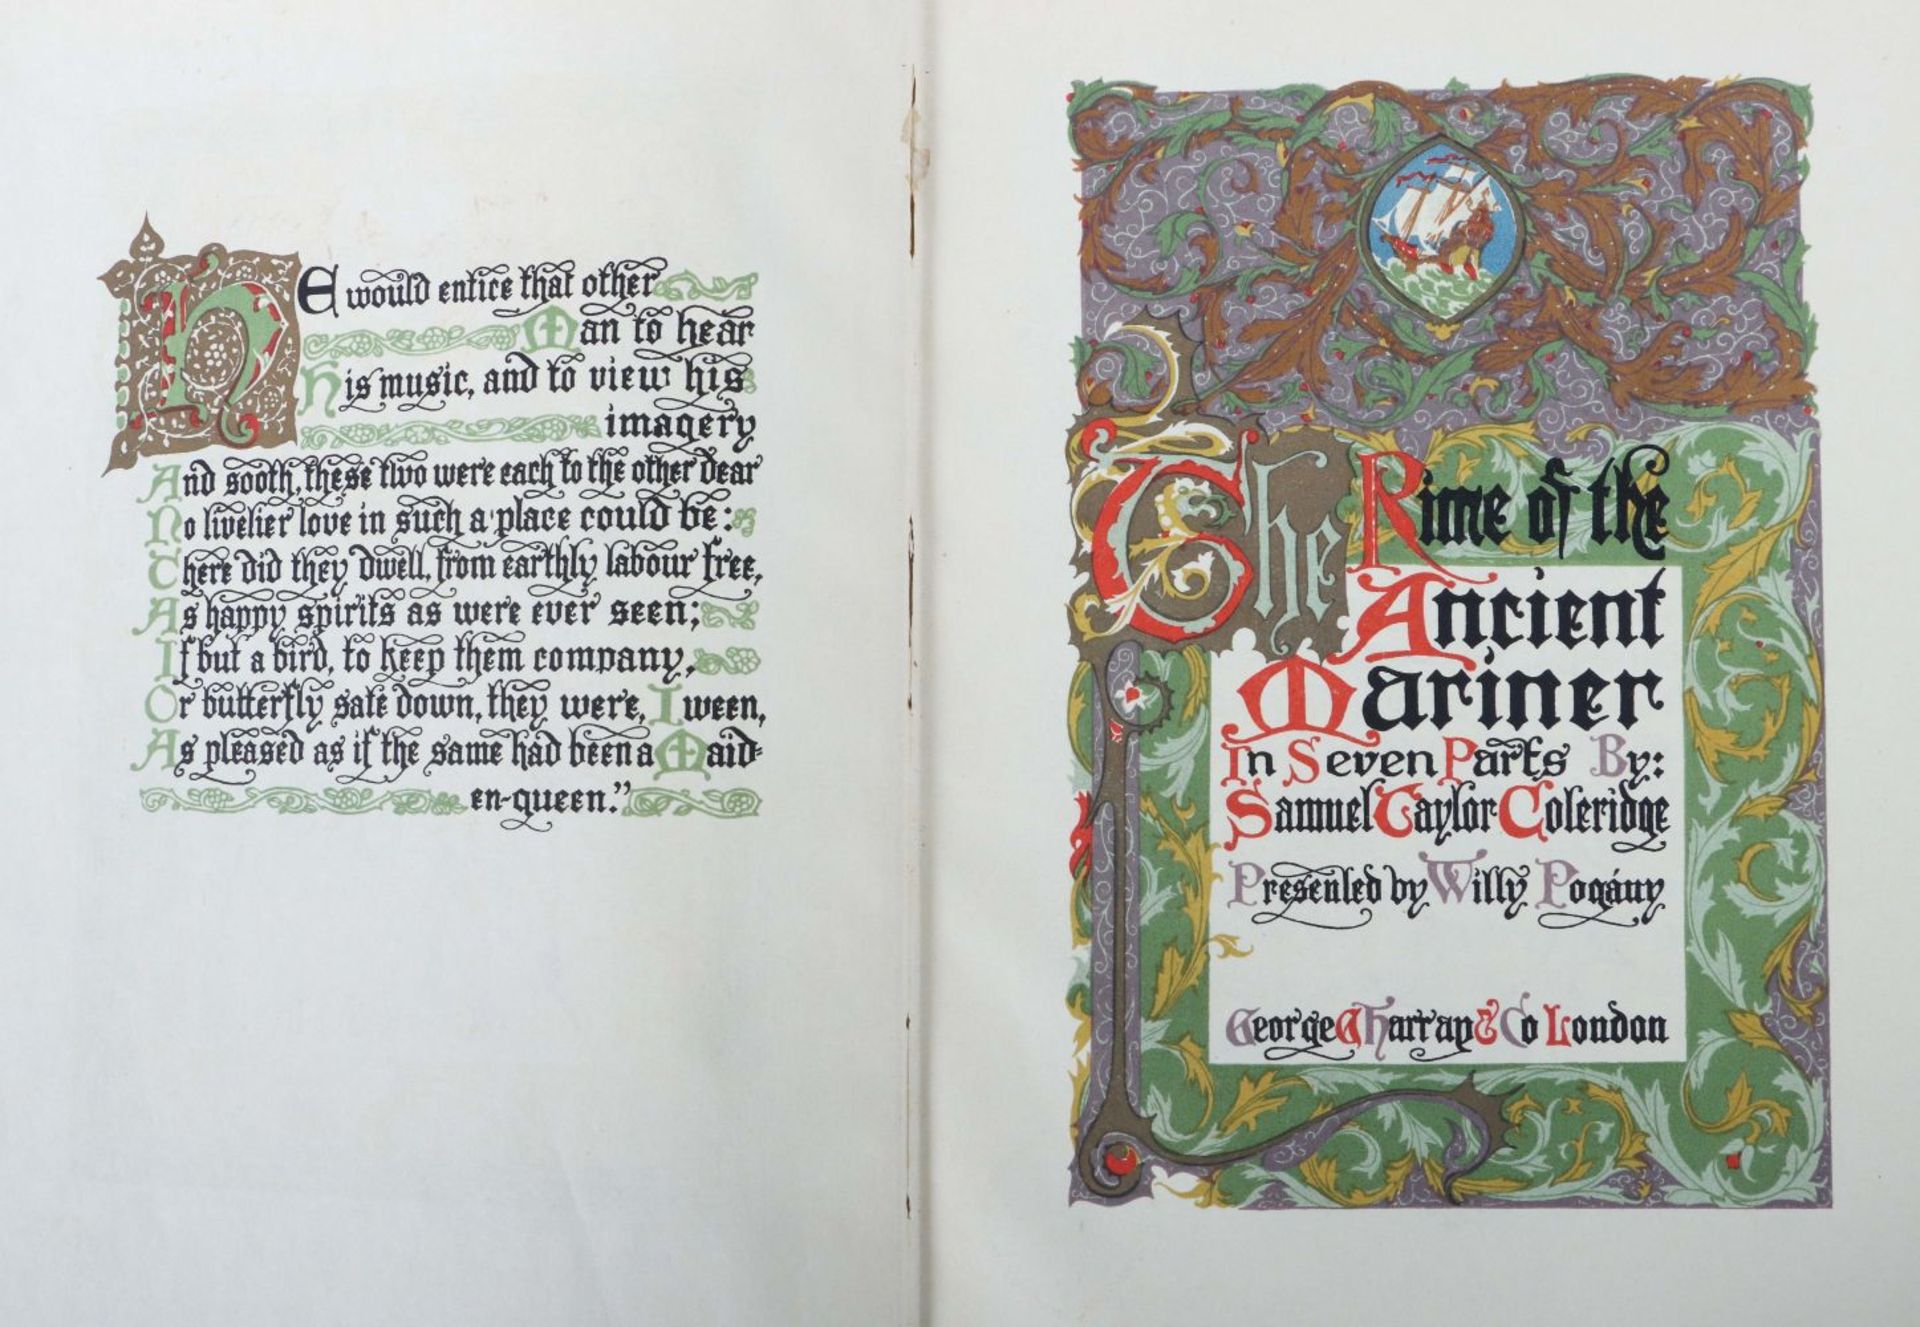 HE would entice that other
Man to hear
His music, and to view his
imagery
And sooth, these two were each to the other dear
No livelier love in such a place could be:
There did they dwell, from earthly labour free,
As happy spirits as were ever seen;
If but a bird, to keep them company,
Or butterfly sate down, they were, I ween,
As pleased as if the same had been a Maid-
en-queen."
The Rime of the
Ancient
Mariner
In Seven Parts By:
Samuel Taylor Coleridge
Presented by Willy Pogány
George G Harrap & Co London